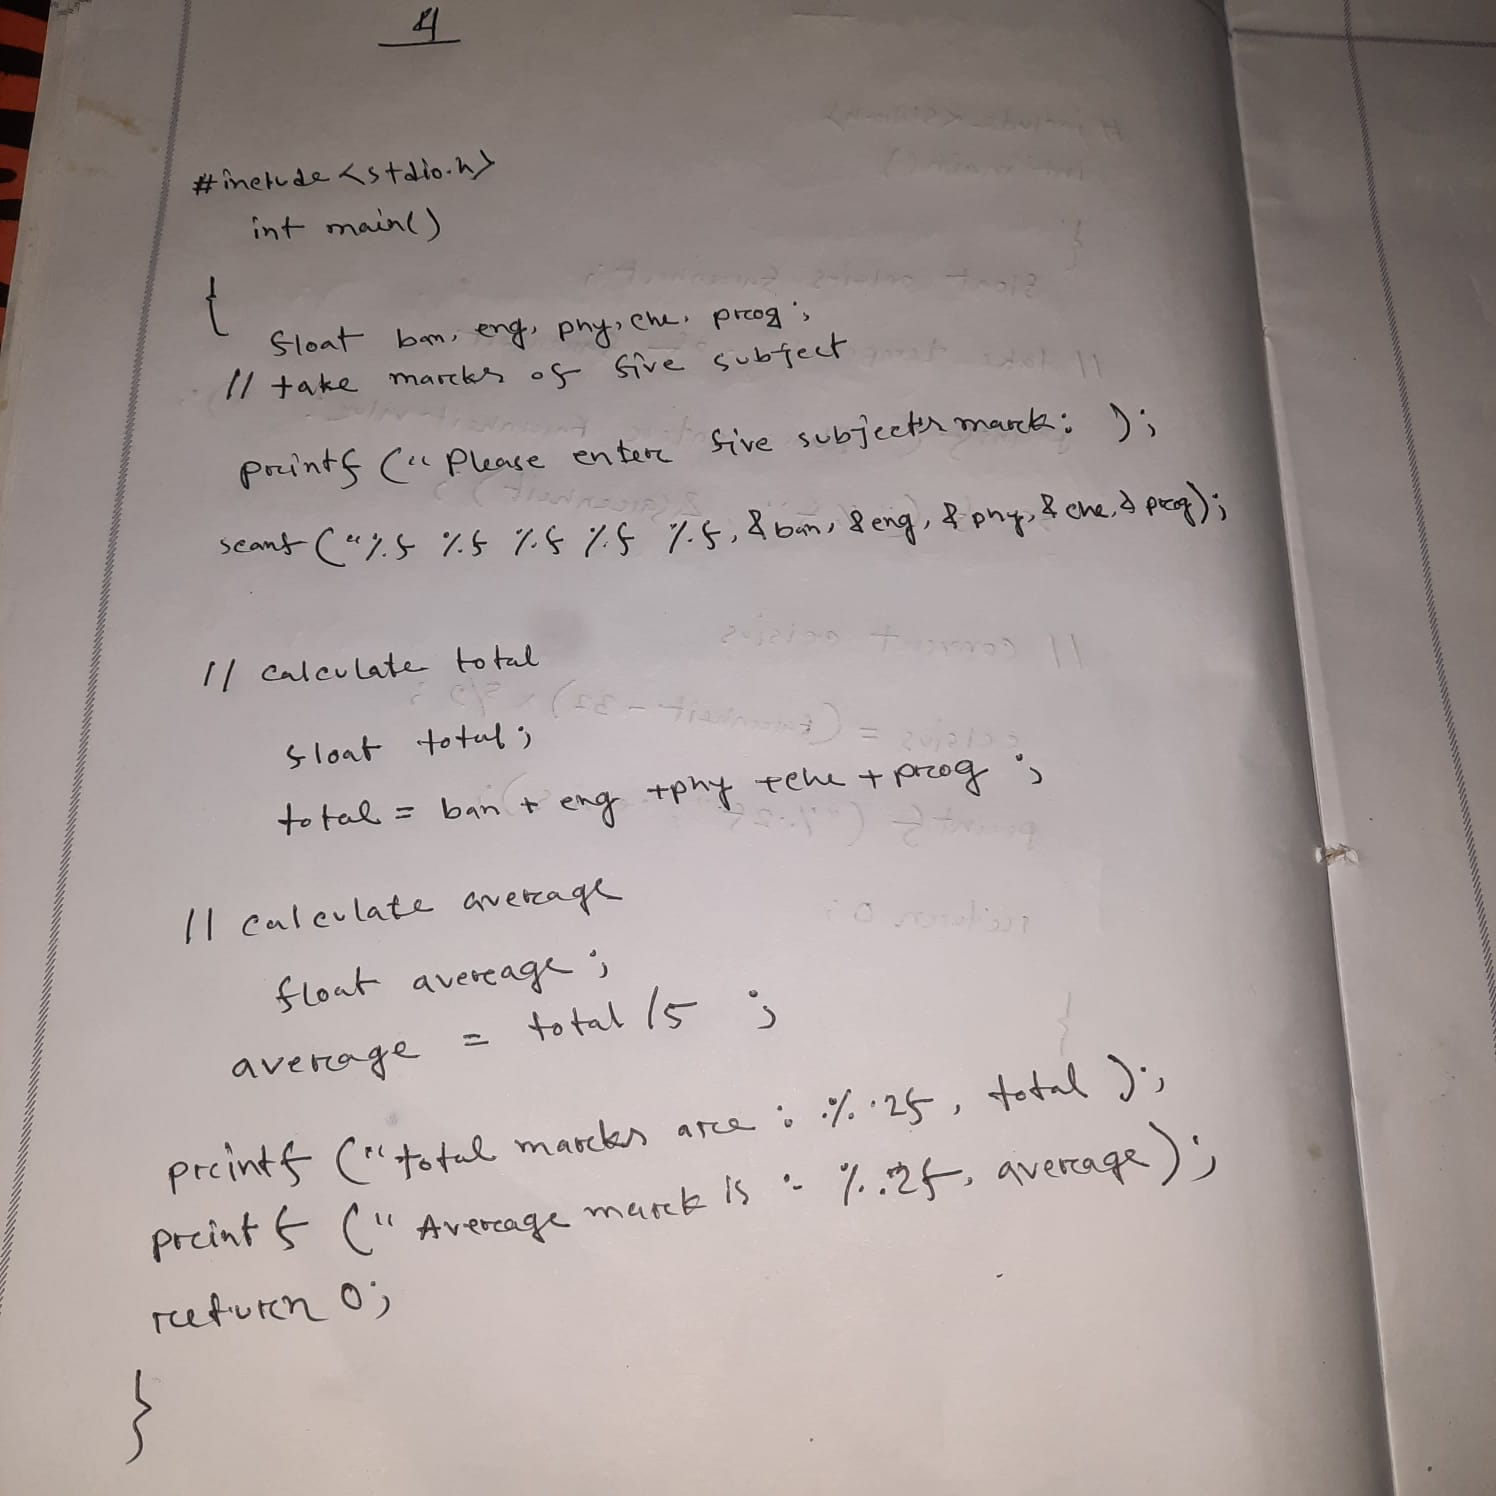 4
#include <stdio.h>
int main()
{
float ban, eng, phy, che, prog;
// take marks of five subject
printf ("Please enter five subjects mark: );
scanf ("%f %f %f %f %f, &ban, &eng, &phy, &che, & prog);
// calculate total
float total;
total = ban + eng +phy +che + prog ;
// calculate average
float average ;
average = total /5 ;
printf ("total marks are : %.2f, total );
printf (" Average mark is :- %.2f, average);
return 0;
}